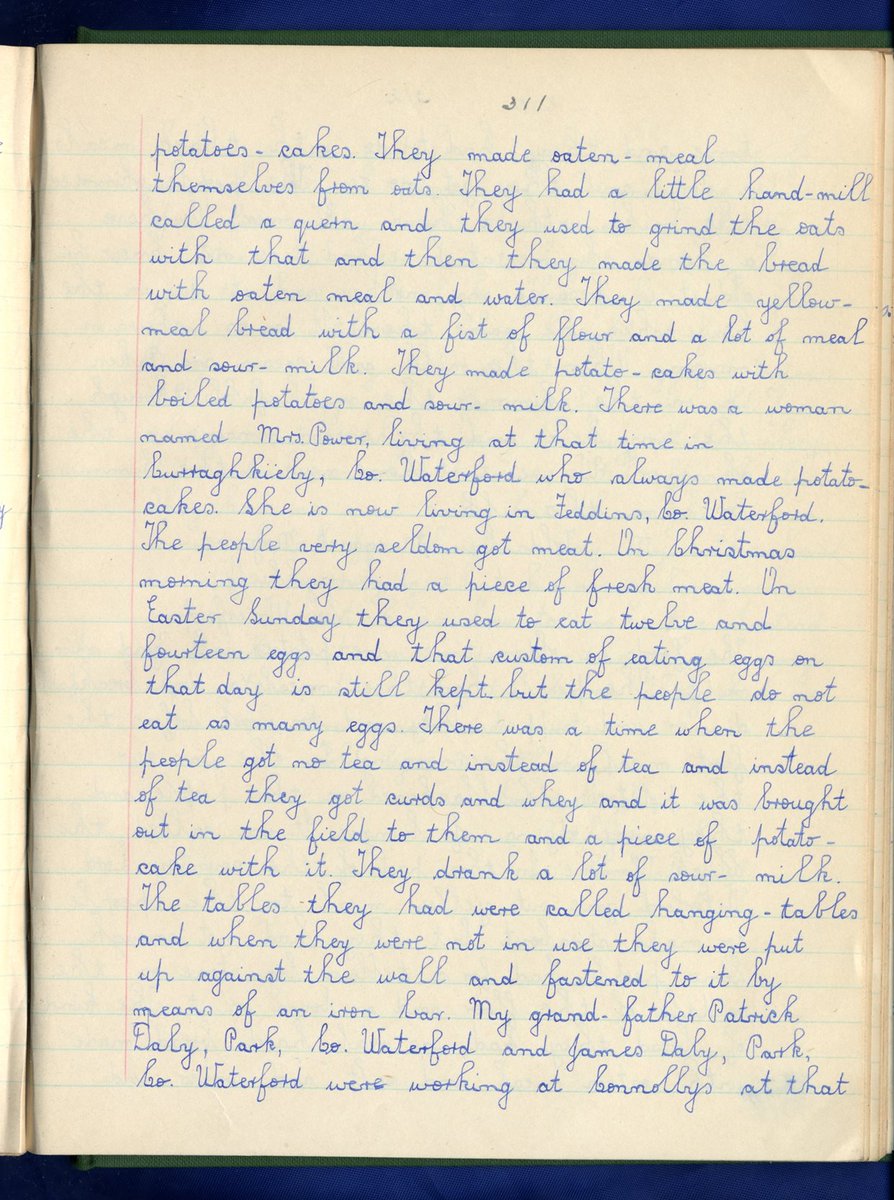 311
potatoes - cakes. They made oaten - meal
themselves from oats. They had a little hand-mill
called a quern and they used to grind the oats
with that and then they made the bread
with oaten meal and water. They made yellow-
meal bread with a fist of flour and a lot of meal
and sour- milk. They made potato - cakes with
boiled potatoes and sour- milk. There was a woman
named Mrs. Power, living at that time in
Curraghkiely, Co. Waterford who always made potato-
cakes. She is now living in Feddins, Co. Waterford.
The people very seldom got meat. On Christmas
morning they had a piece of fresh meat. On
Easter Sunday they used to eat twelve and
fourteen eggs and that custom of eating eggs on
that day is still kept but the people do not
eat as many eggs. There was a time when the
people got no tea and instead of tea and instead
of tea they got curds and whey and it was brought
out in the field to them and a piece of potato -
cake with it. They drank a lot of sour- milk.
The tables they had were called hanging - tables
and when they were not in use they were put
up against the wall and fastened to it by
means of an iron bar. My grand- father Patrick
Daly, Park, Co. Waterford and James Daly, Park,
Co. Waterford were working at Connollys at that